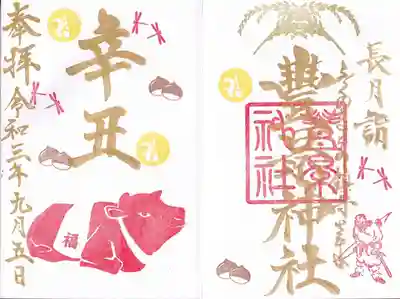 長月詣
豐景神社
豊景神社
辛丑
福
奉拝
令和三年九月五日